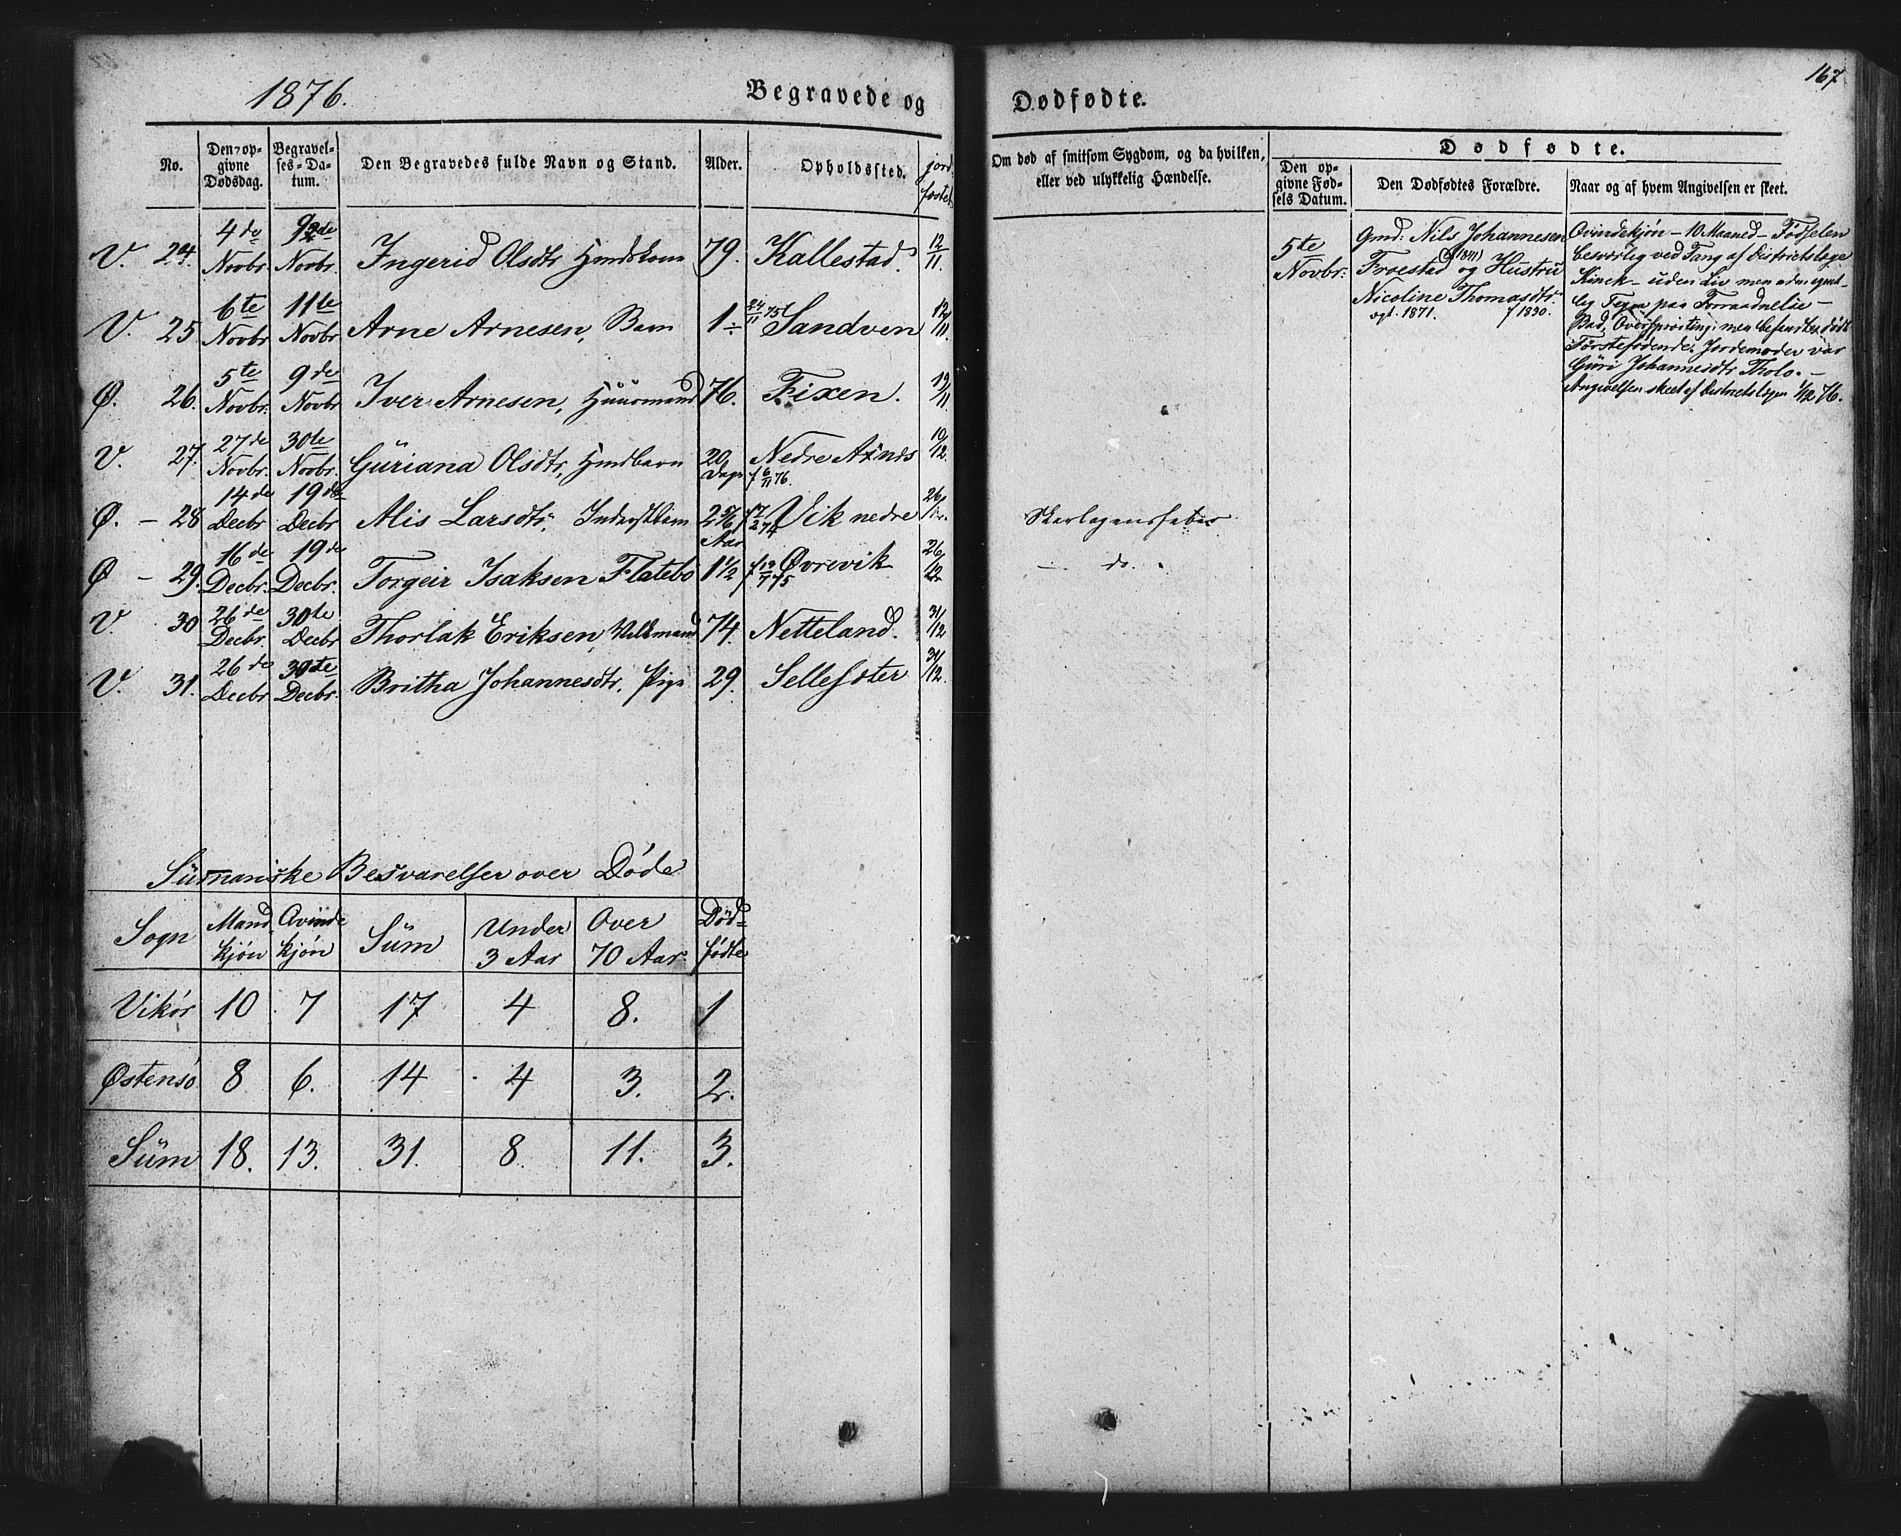 1876.
Begravede og
Dødfødte.
167
No.
Den opgivne Dødsdag.
Begravelses-Datum.
Den Begravedes fulde Navn og Stand.
Alder.
Opholdssted.
jordfæstet
Om død af smitsom Sygdom, og da hvilken, eller ved ulykkelig Hændelse.
Dødfødte.
Den opgivne Fødsels Datum.
Den Dødfødtes Forældre.
Naar og af hvem Angivelsen er skeet.
V. 24. 4de Novbr. 9de Novbr. Ingerid Olsdtr 79. Kallestad. 12/11.
V. 25. 6te Novbr 11te Novbr Arne Arnesen, Barn 1 ÷ 24/11 75 Sandven 12/11.
Ø. 26. 5te Novbr. 9de Novbr Iver Arnesen, Huusmand 76. Fixen. 12/11
V. 27. 27de Novbr. 30te Novbr. Güriana Olsdtr, 20 Dage f 6/11 76. Nedre Axnes 10/12.
Ø. - 28 14de Decbr 19de Decbr Alis Larsdtr, Aar Vik nedre 26/12. Skarlagensfeber
Ø - 29. 16de Decbr. 19de Decbr. Torgeir Isaksen Flatebø 1 1/2 f 12/7 75 Øvrevik 26/12 — do.
V. 30 26de Decbr. 30te Decbr Thorlak Eriksen 74. Netteland. 31/12
V. 31. 26de Decbr 30te Decbr. Britha Johannesdtr. Pige 29. Sellesæter 31/12.
5te Novbr.
Gmd: Nils Johannesen
Froestad (f 1841) og Hustru
Nicoline Thomasdtr.
vgt. 1871. f 1830.
Qvindekjøn - 10 Maaned - Fødselen
besværlig ved Tang af Districtslæge
Kinck - uden Liv men uden egent-
lig Tegn paa Forraadnelse -
Bad, Oversprøiting; men befandtes død.
Førstefødende. Jordemoder var
Güri Johannesdtr Tholo. -
Angivelsen skeet af Districtslægen 1/12 76.
Sümariske Besvarelser over Døde
Sogn Mandkjøn Qvindekjøn Süm Under 3 Aar Over 70 Aar. Dødfødte
Vikør 10 7 17 4 8. 1
Østensø 8 6. 14 4 3. 2.
Süm 18. 13. 31. 8. 11. 3.